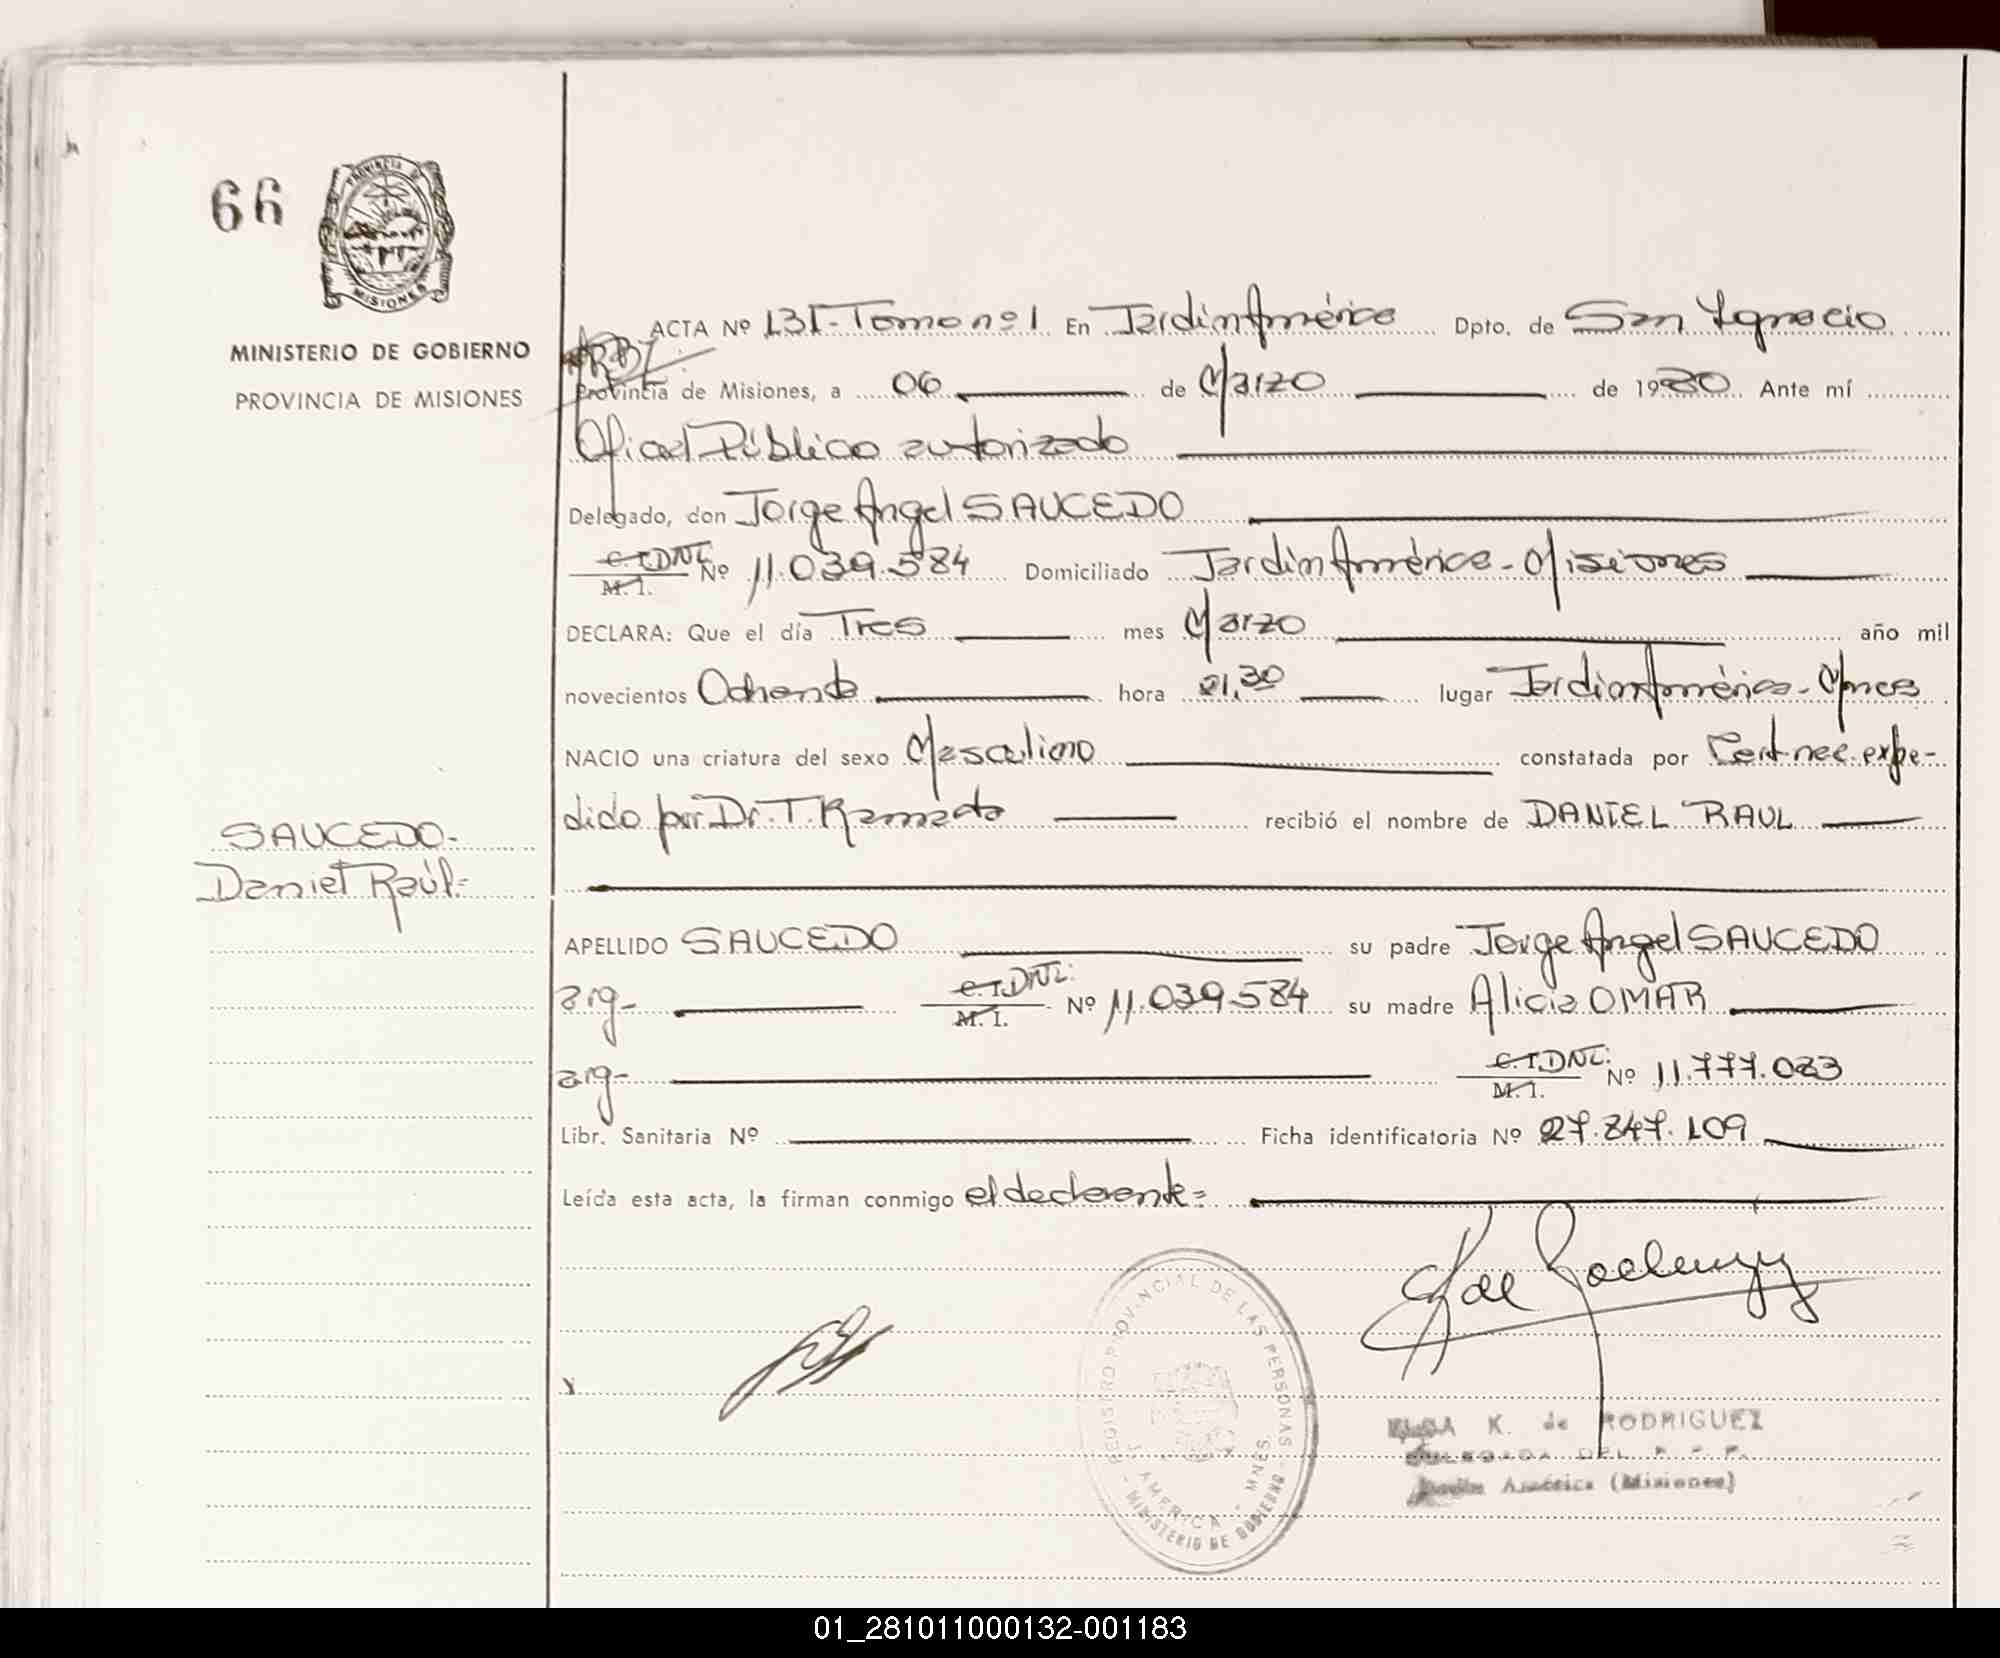 66
PROVINCIA DE
MISIONES
MINISTERIO DE GOBIERNO
PROVINCIA DE MISIONES
ACTA Nº 131-Tomo nº1 En Jardín América Dpto. de San Ignacio
Provincia de Misiones, a 06 de Marzo de 1980 Ante mí
Oficial Público autorizado
Delegado, don Jorge Angel SAUCEDO
C.I. DNI.
M. I. Nº 11.039.584 Domiciliado Jardín América - Misiones
DECLARA: Que el día Tres mes Marzo año mil
novecientos Ochenta hora 21,30 lugar Jardín América - Mnes
NACIO una criatura del sexo Masculino constatada por Cert. nac. expe-
dido por Dr. T. recibió el nombre de DANIEL RAUL
SAUCEDO-
Daniel Raúl=
APELLIDO SAUCEDO su padre Jorge Angel SAUCEDO
arg- C.I. DNI. M. I. Nº 11.039.584 su madre Alicia OMAR
arg- C.I. DNI. M. I. Nº 11.777.083
Libr. Sanitaria Nº Ficha identificatoria Nº 27.847.109
Leída esta acta, la firman conmigo el declarante=
REGISTRO PROVINCIAL DE LAS PERSONAS
J. AMERICA - MNES.
- MINISTERIO DE GOBIERNO -
K. de RODRIGUEZ
DELEGADA DEL R. P. P.
Jardín América (Misiones)
01_281011000132-001183